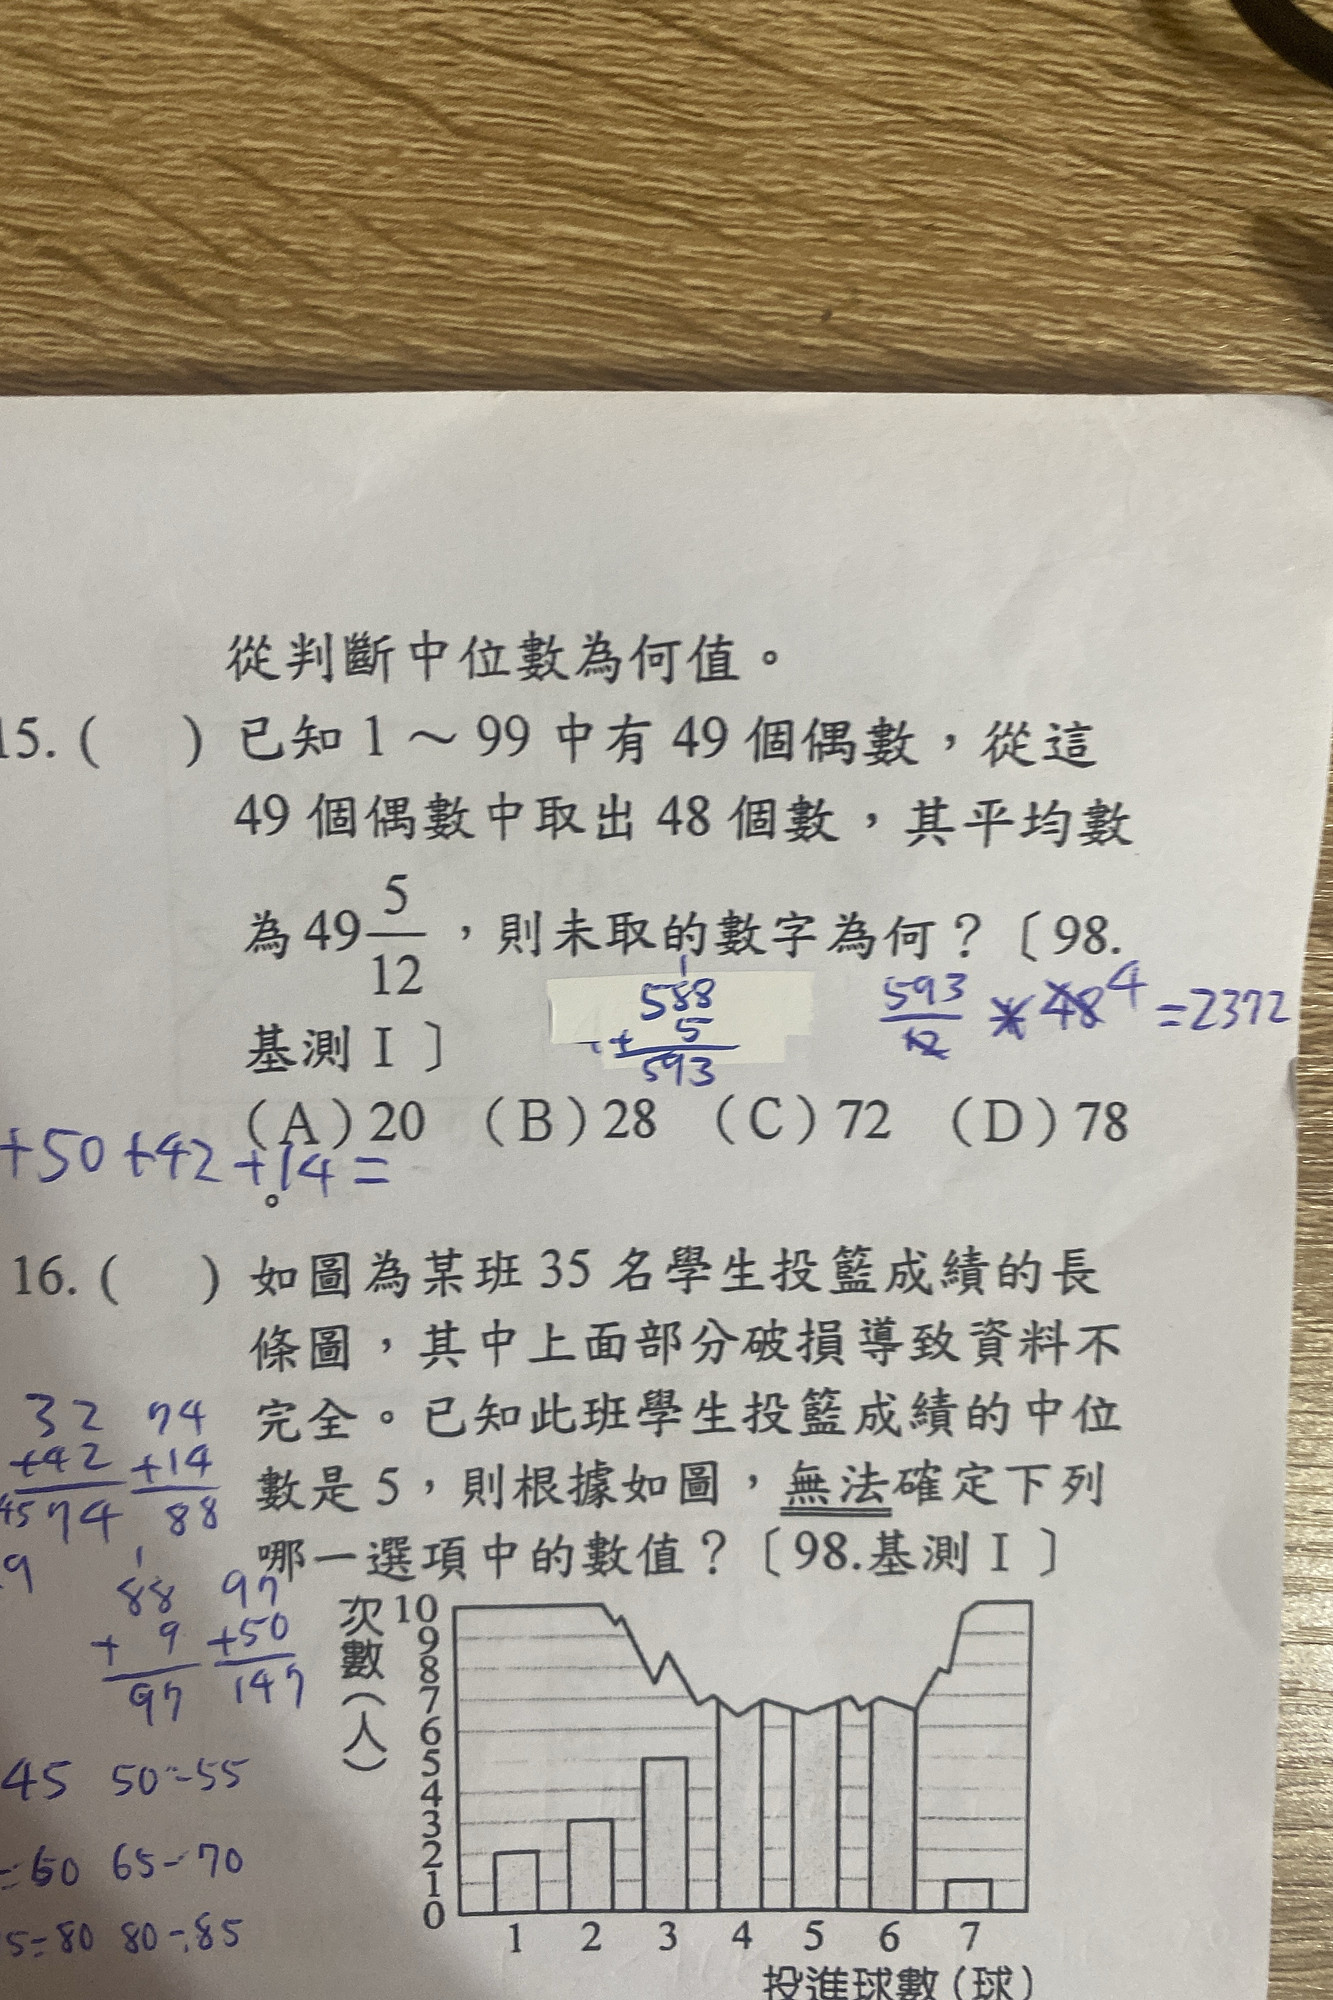 從判斷中位數為何值。
15. (　) 已知 1 ～ 99 中有 49 個偶數，從這
49 個偶數中取出 48 個數，其平均數
為 49 5/12，則未取的數字為何？〔98.
基測 I 〕
588
+ 5
593
593/12 × 48 4 = 2372
(A) 20 (B) 28 (C) 72 (D) 78
。
+50+42+14=
16. (　) 如圖為某班 35 名學生投籃成績的長
條圖，其中上面部分破損導致資料不
完全。已知此班學生投籃成績的中位
數是 5，則根據如圖，無法確定下列
哪一選項中的數值？〔98.基測 I 〕
32 74
+42 +14
74 88
88 97
+ 9 +50
97 147
45 50-55
60 65-70
80 80-85
次數（人）
10
9
8
7
6
5
4
3
2
1
0
1 2 3 4 5 6 7
投進球數（球）